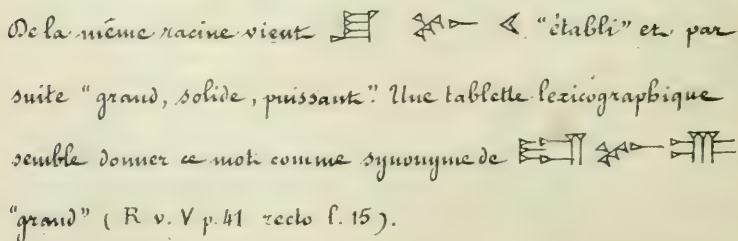 De la même racine vient "établi" et par
suite "grand, solide, puissant". Une tablette lexicographique
semble donner ce mot comme synonyme de
"grand" (R v. V p. 41 recto l. 15).